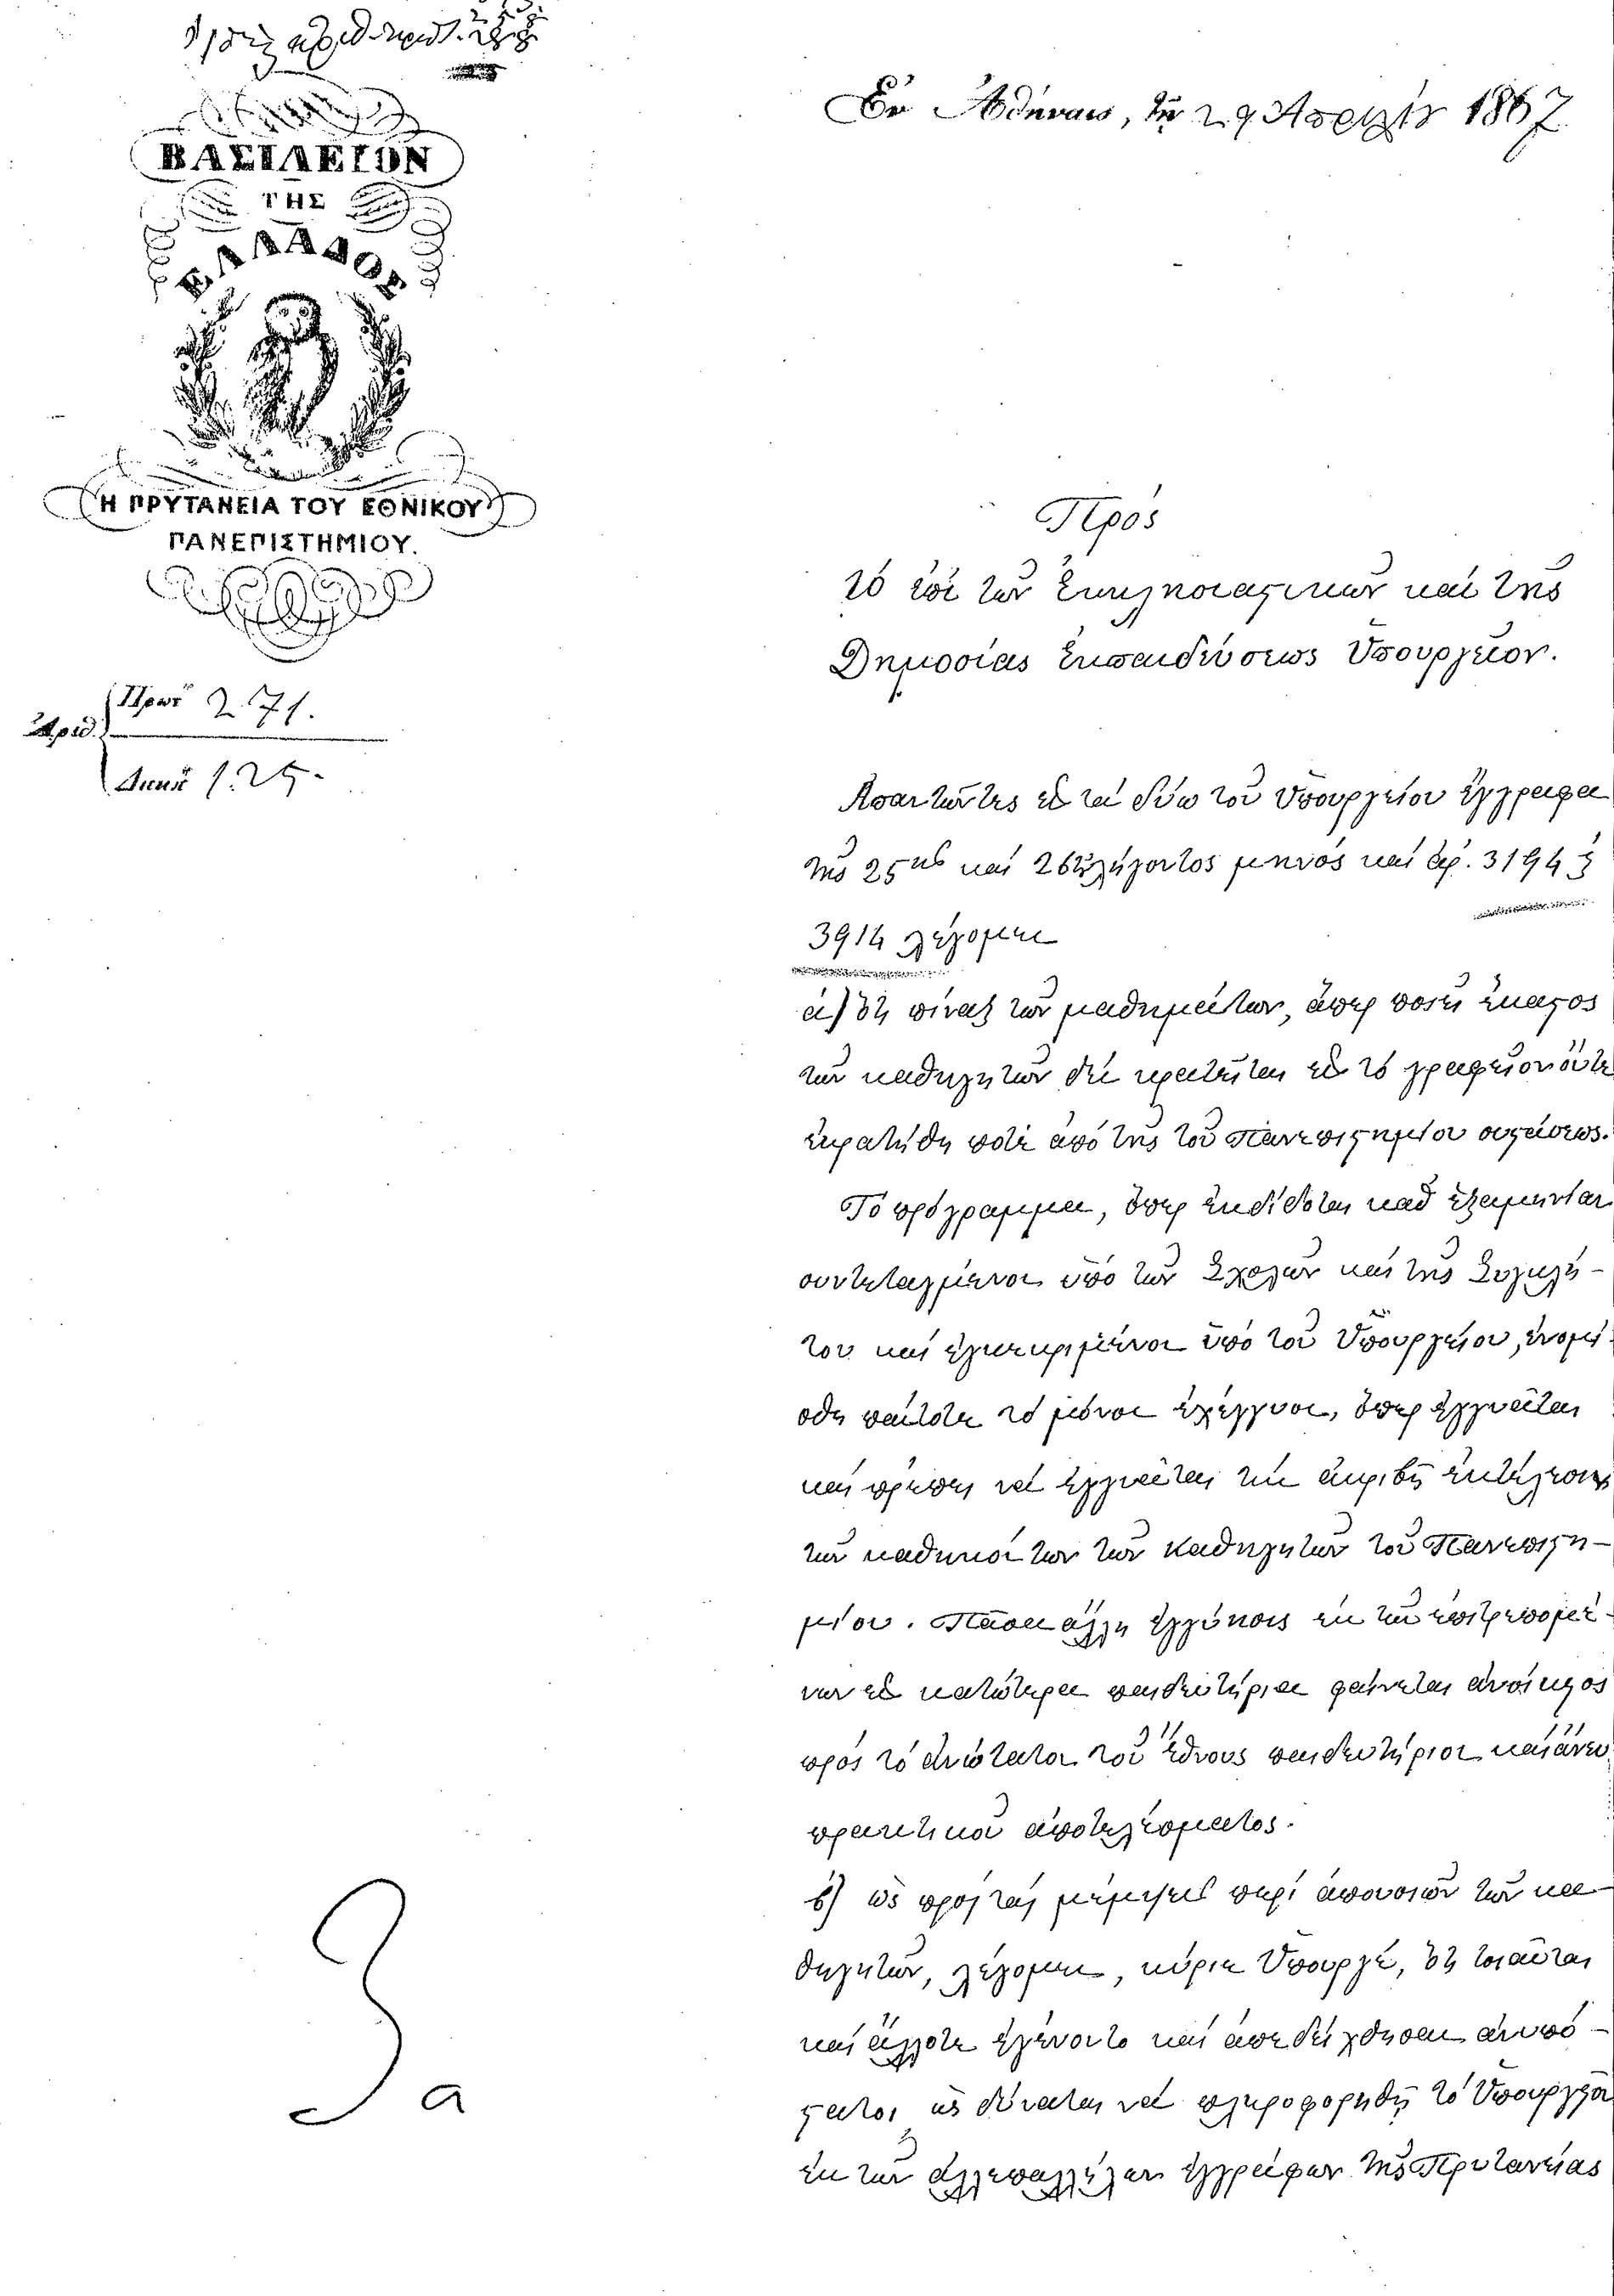 ΒΑΣΙΛΕΙΟΝ
ΤΗΣ
ΕΛΛΑΔΟΣ
Η ΠΡΥΤΑΝΕΙΑ ΤΟΥ ΕΘΝΙΚΟΥ
ΠΑΝΕΠΙΣΤΗΜΙΟΥ.
Ἀριθ.
Πρωτ 271.
Διεκπ 125.
Ἐν Ἀθήναις, τῇ 29 Ἀπριλίου 1867
Πρός
τό ἐπί τῶν Ἐκκλησιαστικῶν καί τῆς
Δημοσίας Ἐκπαιδεύσεως Ὑπουργεῖον.
Ἀπαντῶντες εἰς τά δύω τοῦ Ὑπουργείου ἔγγραφα
τῆς 25ης καί 26 λήγοντος μηνός καί ἀρ. 3194 καί
3914 λέγομεν
ά) ὅτι πίναξ τῶν μαθημάτων, ἅπερ ποιεῖ ἕκαστος
τῶν καθηγητῶν δέν κρατεῖται εἰς τό γραφεῖον οὔτε
ἐκρατήθη ποτέ ἀπό τῆς τοῦ Πανεπιστημίου συστάσεως.
Τό πρόγραμμα, ὅπερ ἐκδίδοται καθ ἑξαμηνίαν
συντεταγμένον ὑπό τῶν Σχολῶν καί τῆς Συγκλή-
του καί ἐγκεκριμένον ὑπό τοῦ Ὑπουργείου, ἐνομί
σθη πάντοτε τό μόνον ἐχέγγυον, ὅπερ ἐγγυᾶται
καί πρέπει νά ἐγγυᾶται τήν ἀκριβῆ ἐκτέλεσιν
τῶν καθηκόντων τῶν καθηγητῶν τοῦ Πανεπιστη-
μίου. Πᾶσα ἄλλη ἐγγύησις ἐκ τῶν ἐπιτρεπομέ-
νων εἰς κατώτερα παιδευτήρια φαίνεται ἀνοίκειος
πρός τό ἀνώτατον τοῦ Ἔθνους παιδευτήριον καί ἄνευ
πρακτικοῦ ἀποτελέσματος.
β) ὡς πρός τάς μέμψεις περί ἀπουσιῶν τῶν κα-
θηγητῶν, λέγομεν, κύριε Ὑπουργέ, ὅτι τοιαῦται
καί ἄλλοτε ἐγένοντο καί ἀπεδείχθησαν ἀνυπό-
στατοι, ὡς δύναται νά πληροφορηθῇ τό Ὑπουργεῖον
ἐκ τῶν ἀλλεπαλλήλων ἐγγράφων τῆς Πρυτανείας
3α